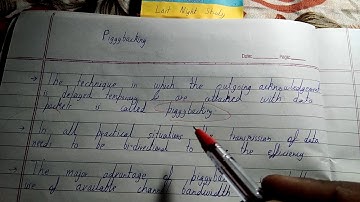 Last Night Study
Piggybacking
Date: Page:
→ The technique in which the outgoing acknowledgement
is delayed temporary & are attached with data
packets is called piggybacking
→ In all practical situations transmission of data
need to be bi-directional to the efficiency
→ The major advantage of piggyba
use of available channel bandwidth